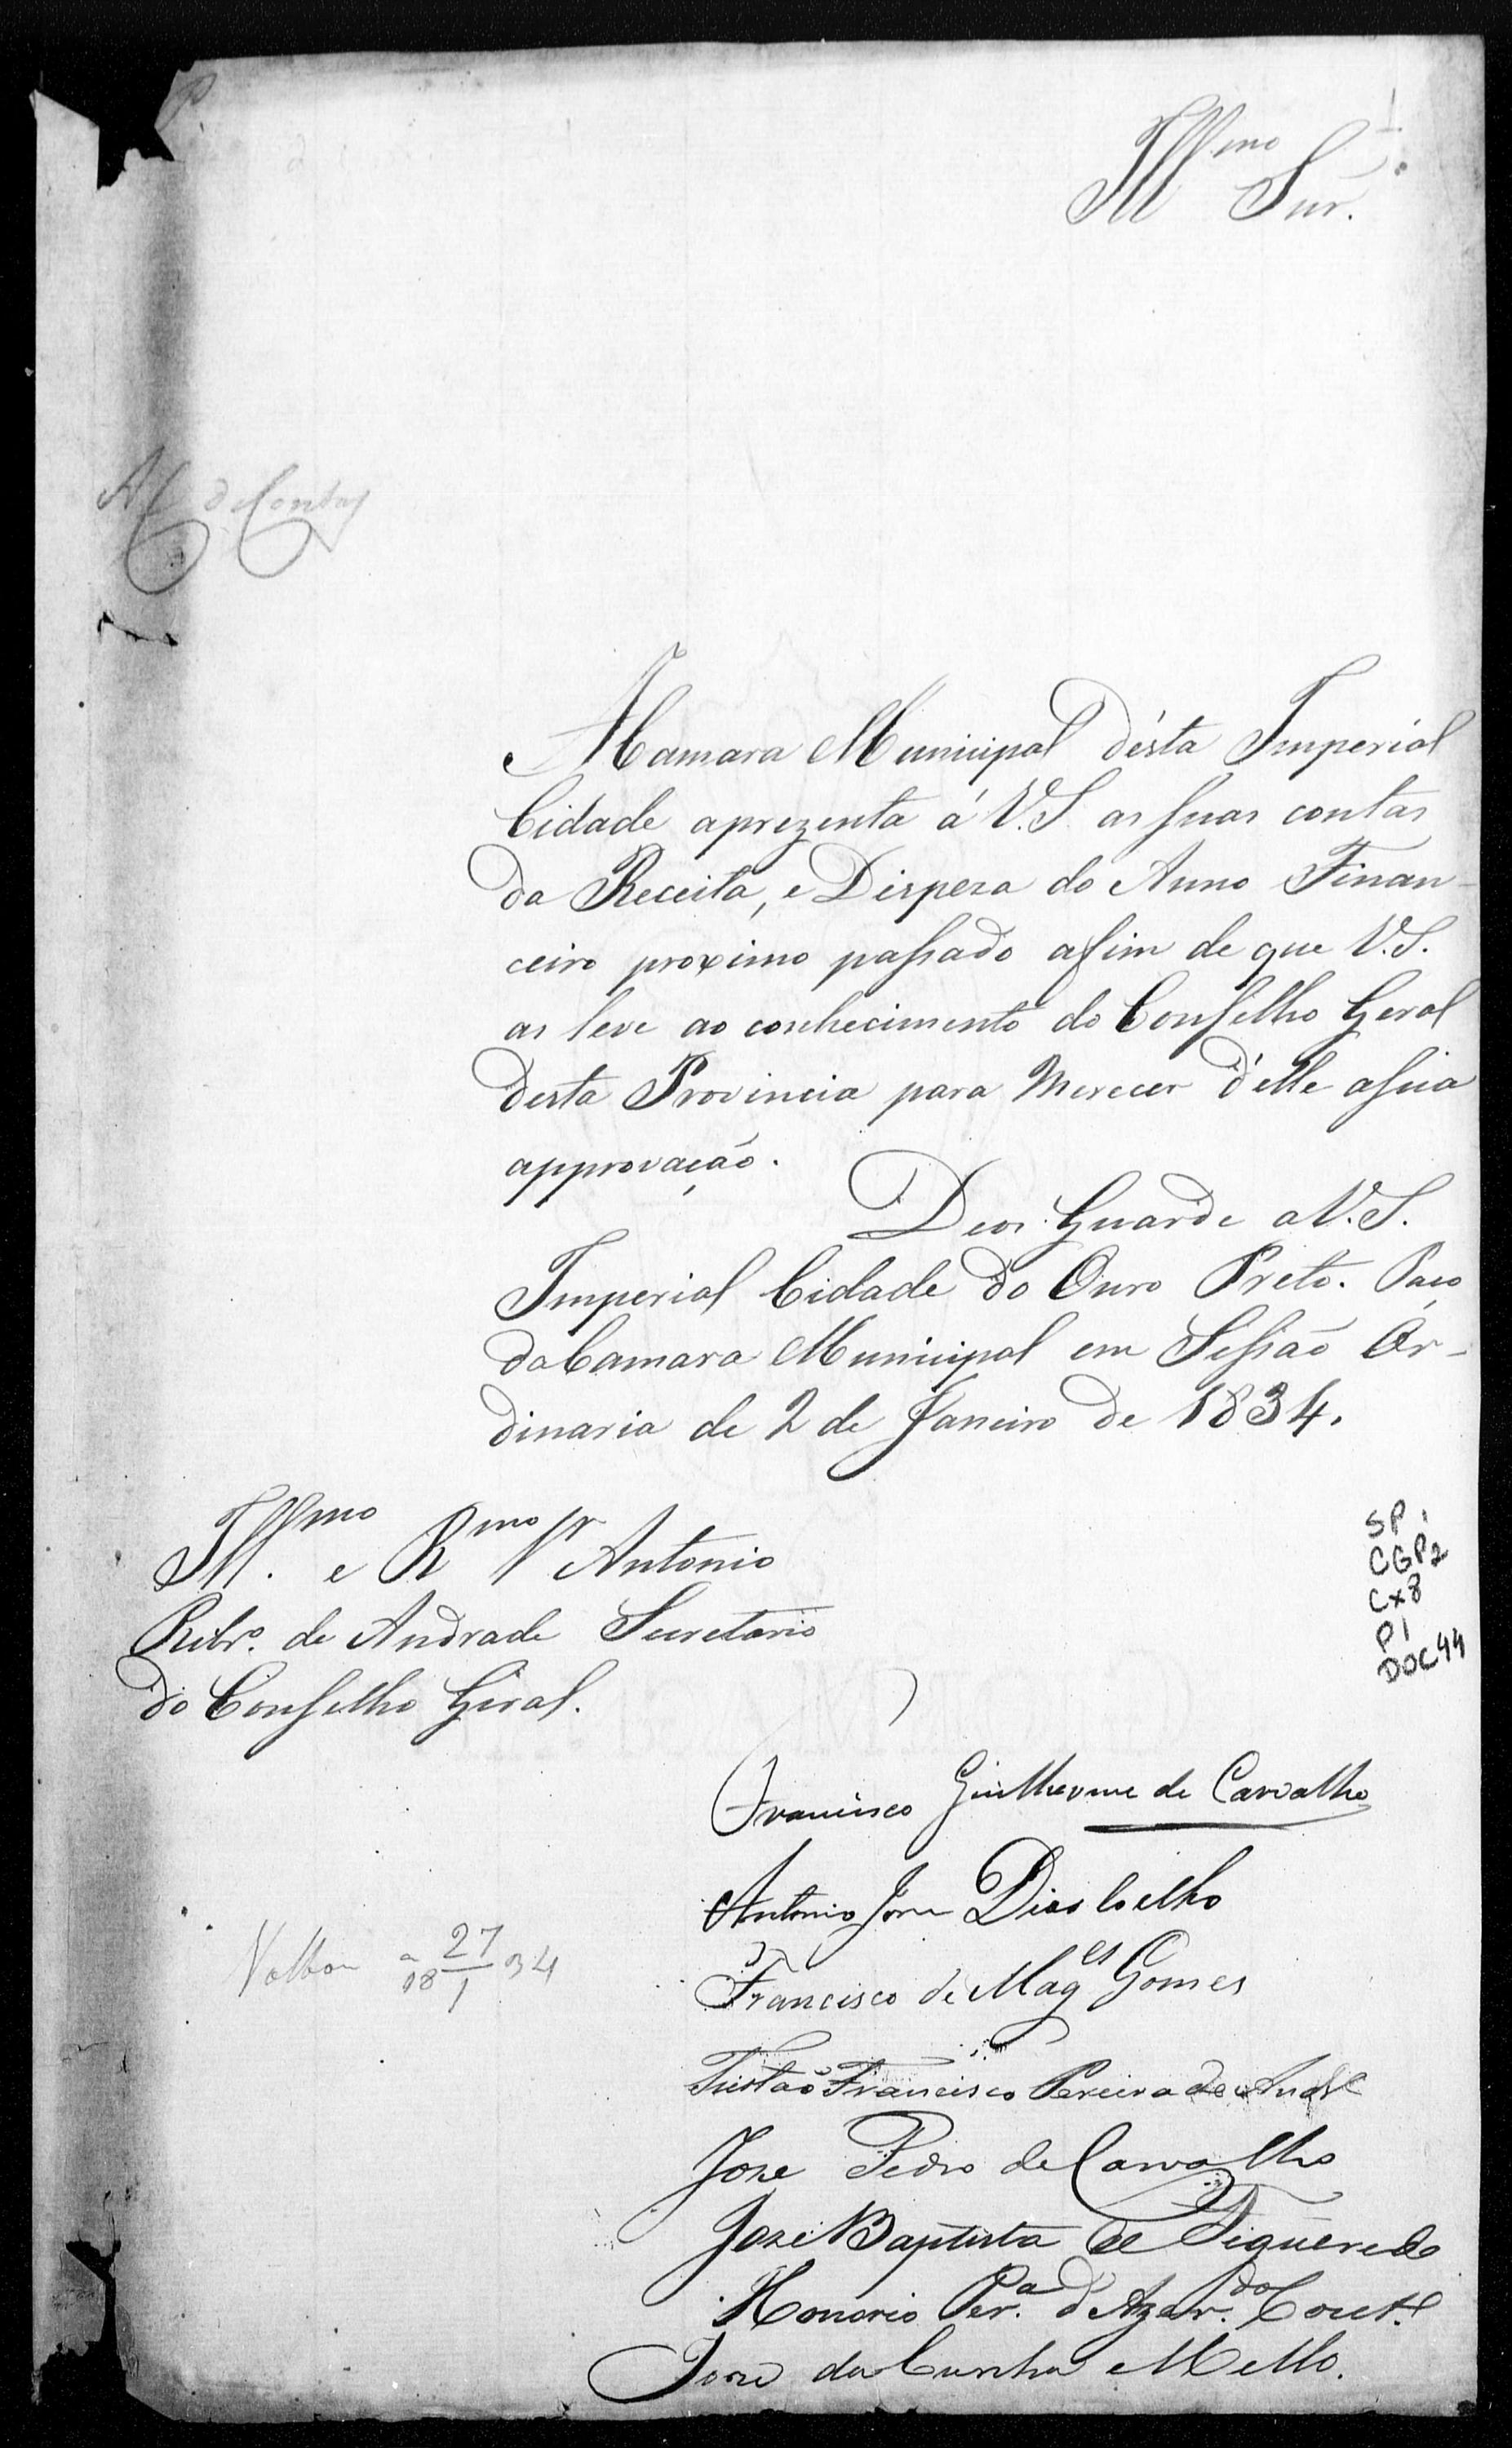 Illmo Snr.
A C. de Contas
A Camara Municipal désta Imperial
Cidade aprezenta á V.S. as suas contas
da Receita, e Dispeza do Anno Finan-
ceiro proximo passado afim de que V.S.
as leve ao conhecimento do Conselho Geral
desta Provincia para merecer d'elle a sua
approvação.
Deos Guarde a V.S.
Imperial Cidade do Ouro Preto. Paço
da Camara Municipal em Sessão Or-
dinaria de 2 de Janeiro de 1834.
Illmo. e Rmo Sr Antonio
Ribro. de Andrade Secretario
do Conselho Geral.
SP.
CGP2
CX8
P1
DOC44
Francisco Guilherme de Carvalho
Antonio Joze Dias Coelho
Voltou a 27
18 1 34
Francisco de Mages Gomes
Tristaõ Francisco Pereira de Andre
Joze Pedro de Carvalho
Joze Baptista de Figueredo
Honorio Per.a d'Azer.do Cout.o
Joze da Cunha Mello.